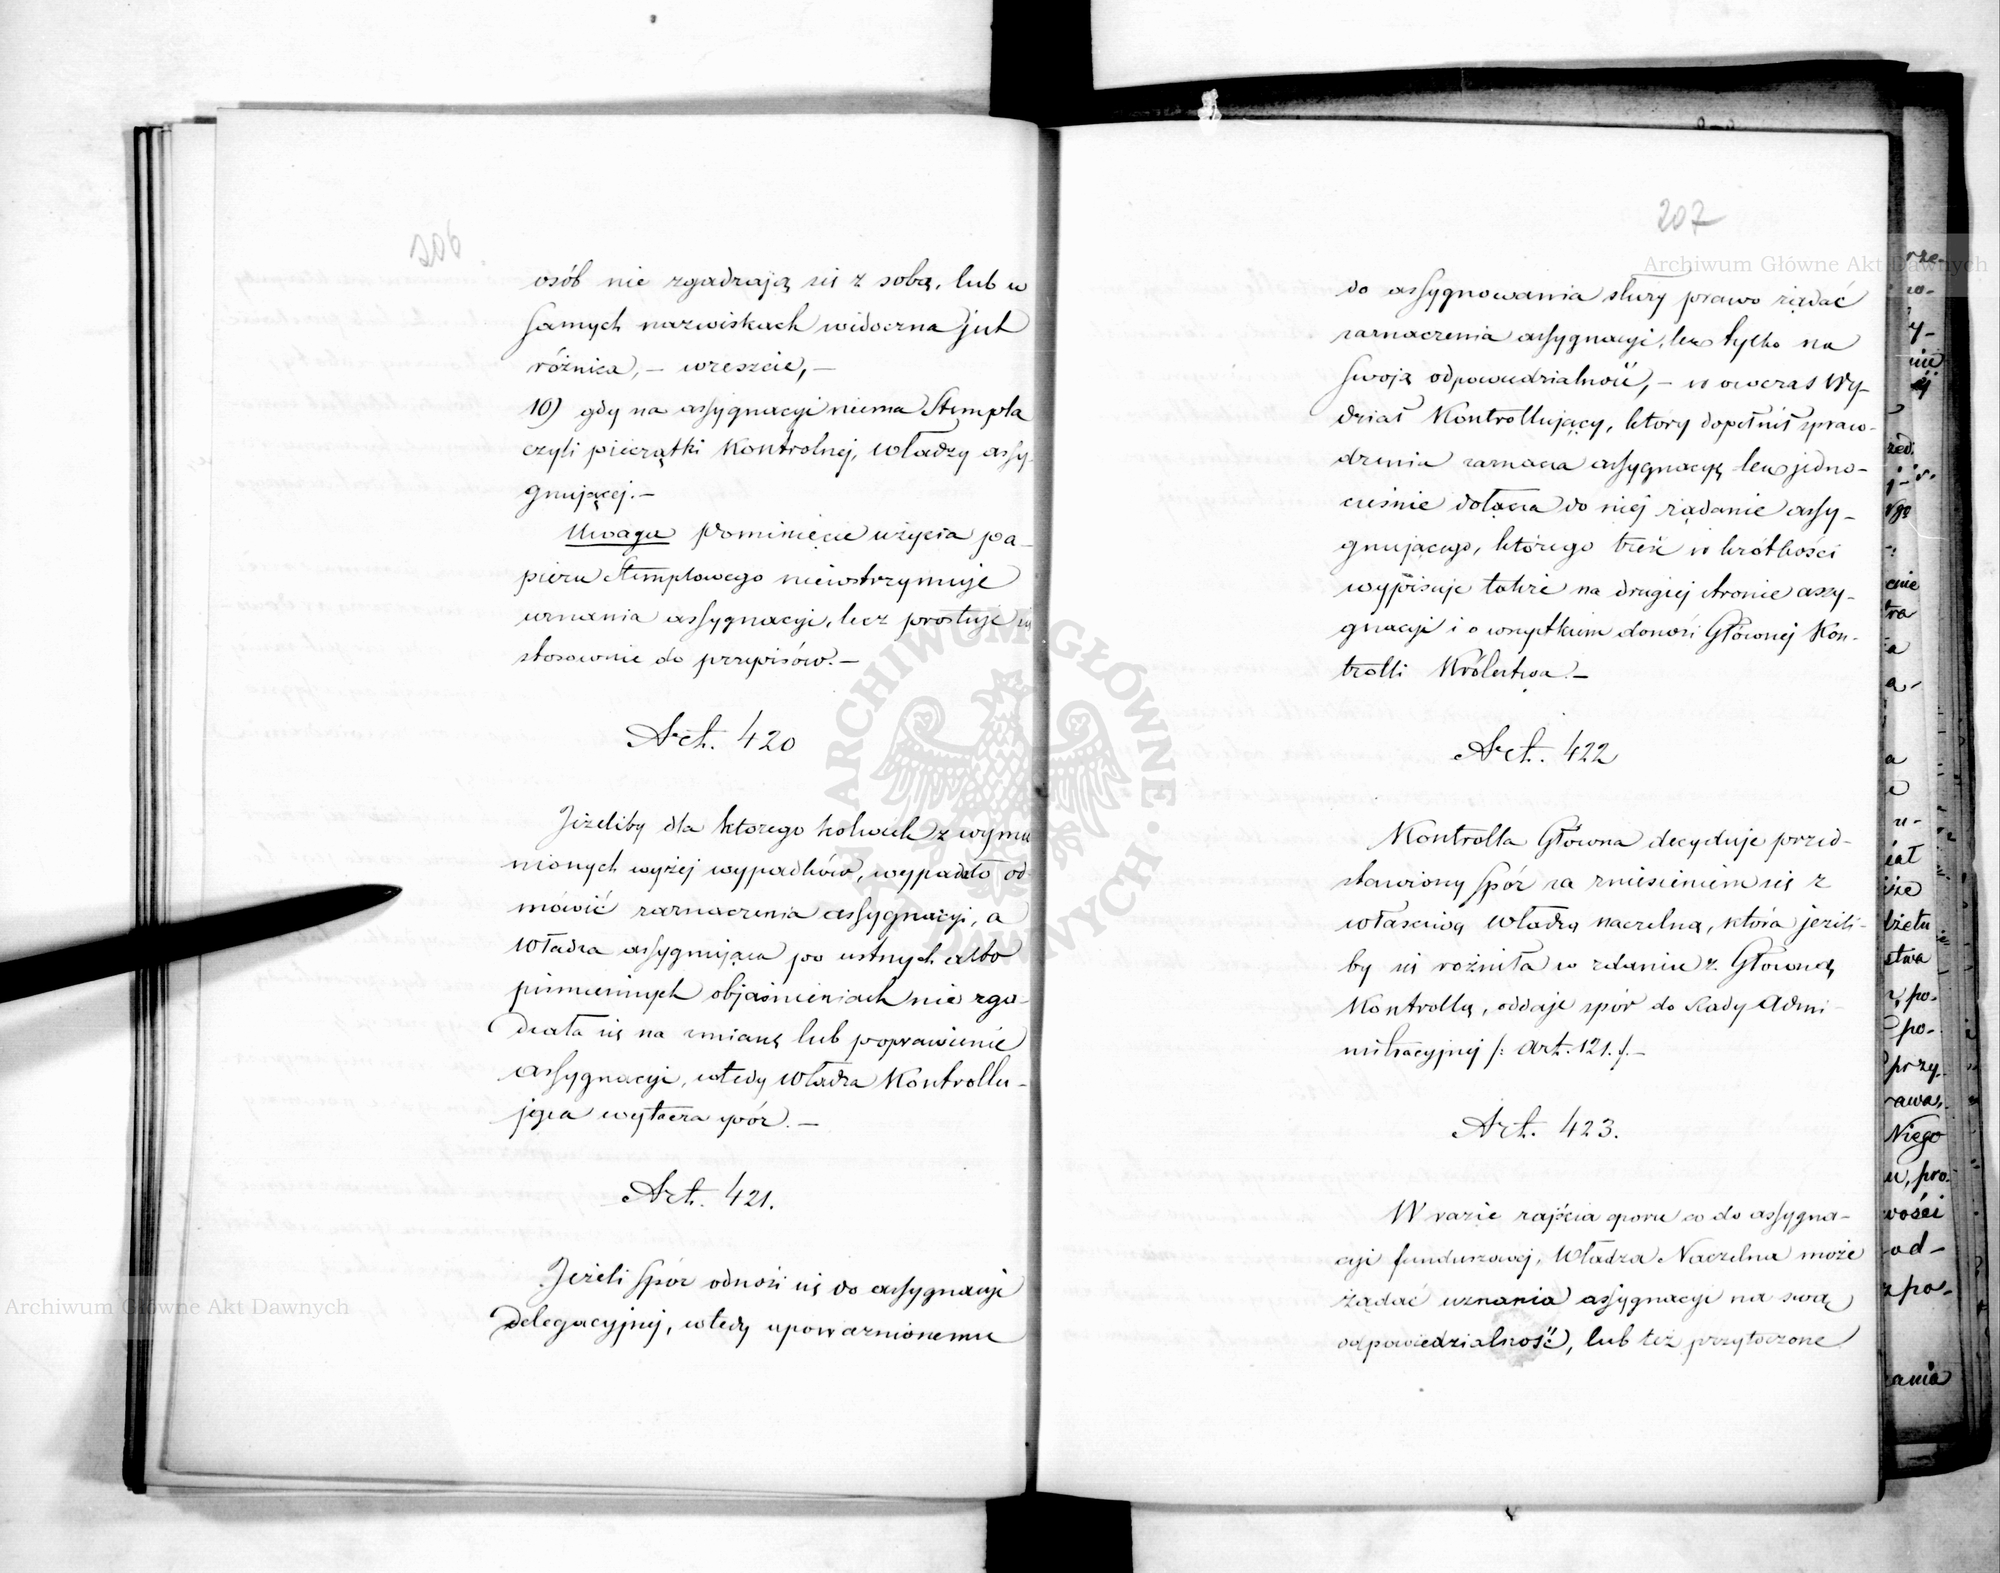 206
osób nie zgadzają się z sobą, lub w
samych nazwiskach widoczna jest
różnica, – wreszcie, –
10) gdy na assygnacyi niema Stempla
czyli pieczątki Kontrolnej, władzy assy-
gnującej. –
Uwaga Pominięcie użycia pa-
pieru Stemplowego niewstrzymuje
uznania assygnacyi, lecz prostuje się
stosownie do przepisów. –
Art. 420
Jeżeliby dla którego kolwiek z wymie
nionych wyżej wypadków, wypadało od-
mówić zaznaczenia assygnacyi, a
Władza assygnująca po ustnych albo
piśmiennych objaśnieniach nie zga-
dzała się na zmianę lub poprawienie
assygnacyi, wtedy Władza Kontrollu-
jąca wytacza spór. –
Art. 421.
Jeżeli Spór odnosi się do assygnacyi
Delegacyjnej, wtedy upoważnionemu
207
do assygnowania służy prawo żądać
zaznaczenia assygnacyi, lecz tylko na
swoją odpowiedzialność, – w owczas Wy-
dział Kontrollujący, który dopełnił spraw-
dzenia zaznacza assygnacyę lecz jedno-
cześnie dołącza do niej żądanie assy-
gnującego, którego treść w krótkości
wypisuje także na drugiej stronie assy-
gnacyi i o wszystkiem donosi Głównej Kon-
trolli Królestwa. –
Art. 422
Kontrolla Główna decyduje przed-
stawiony Spór za zniesieniem się z
właściwą Władzą naczelną, która jeżeli-
by się rożniła w zdaniu z Główną
Kontrollą, oddaje spór do Rady Admi-
nistracyjnej /: Art. 121. /. –
Art. 423.
W razie zajścia sporu co do assygna-
cyi funduszowej, Władza Naczelna może
żądać uznania assygnacyi na swą
odpowiedzialność, lub też przytoczone
Archiwum Główne Akt Dawnych
Archiwum Główne Akt Dawnych
ARCHIWUM GŁÓWNE AKT DAWNYCH